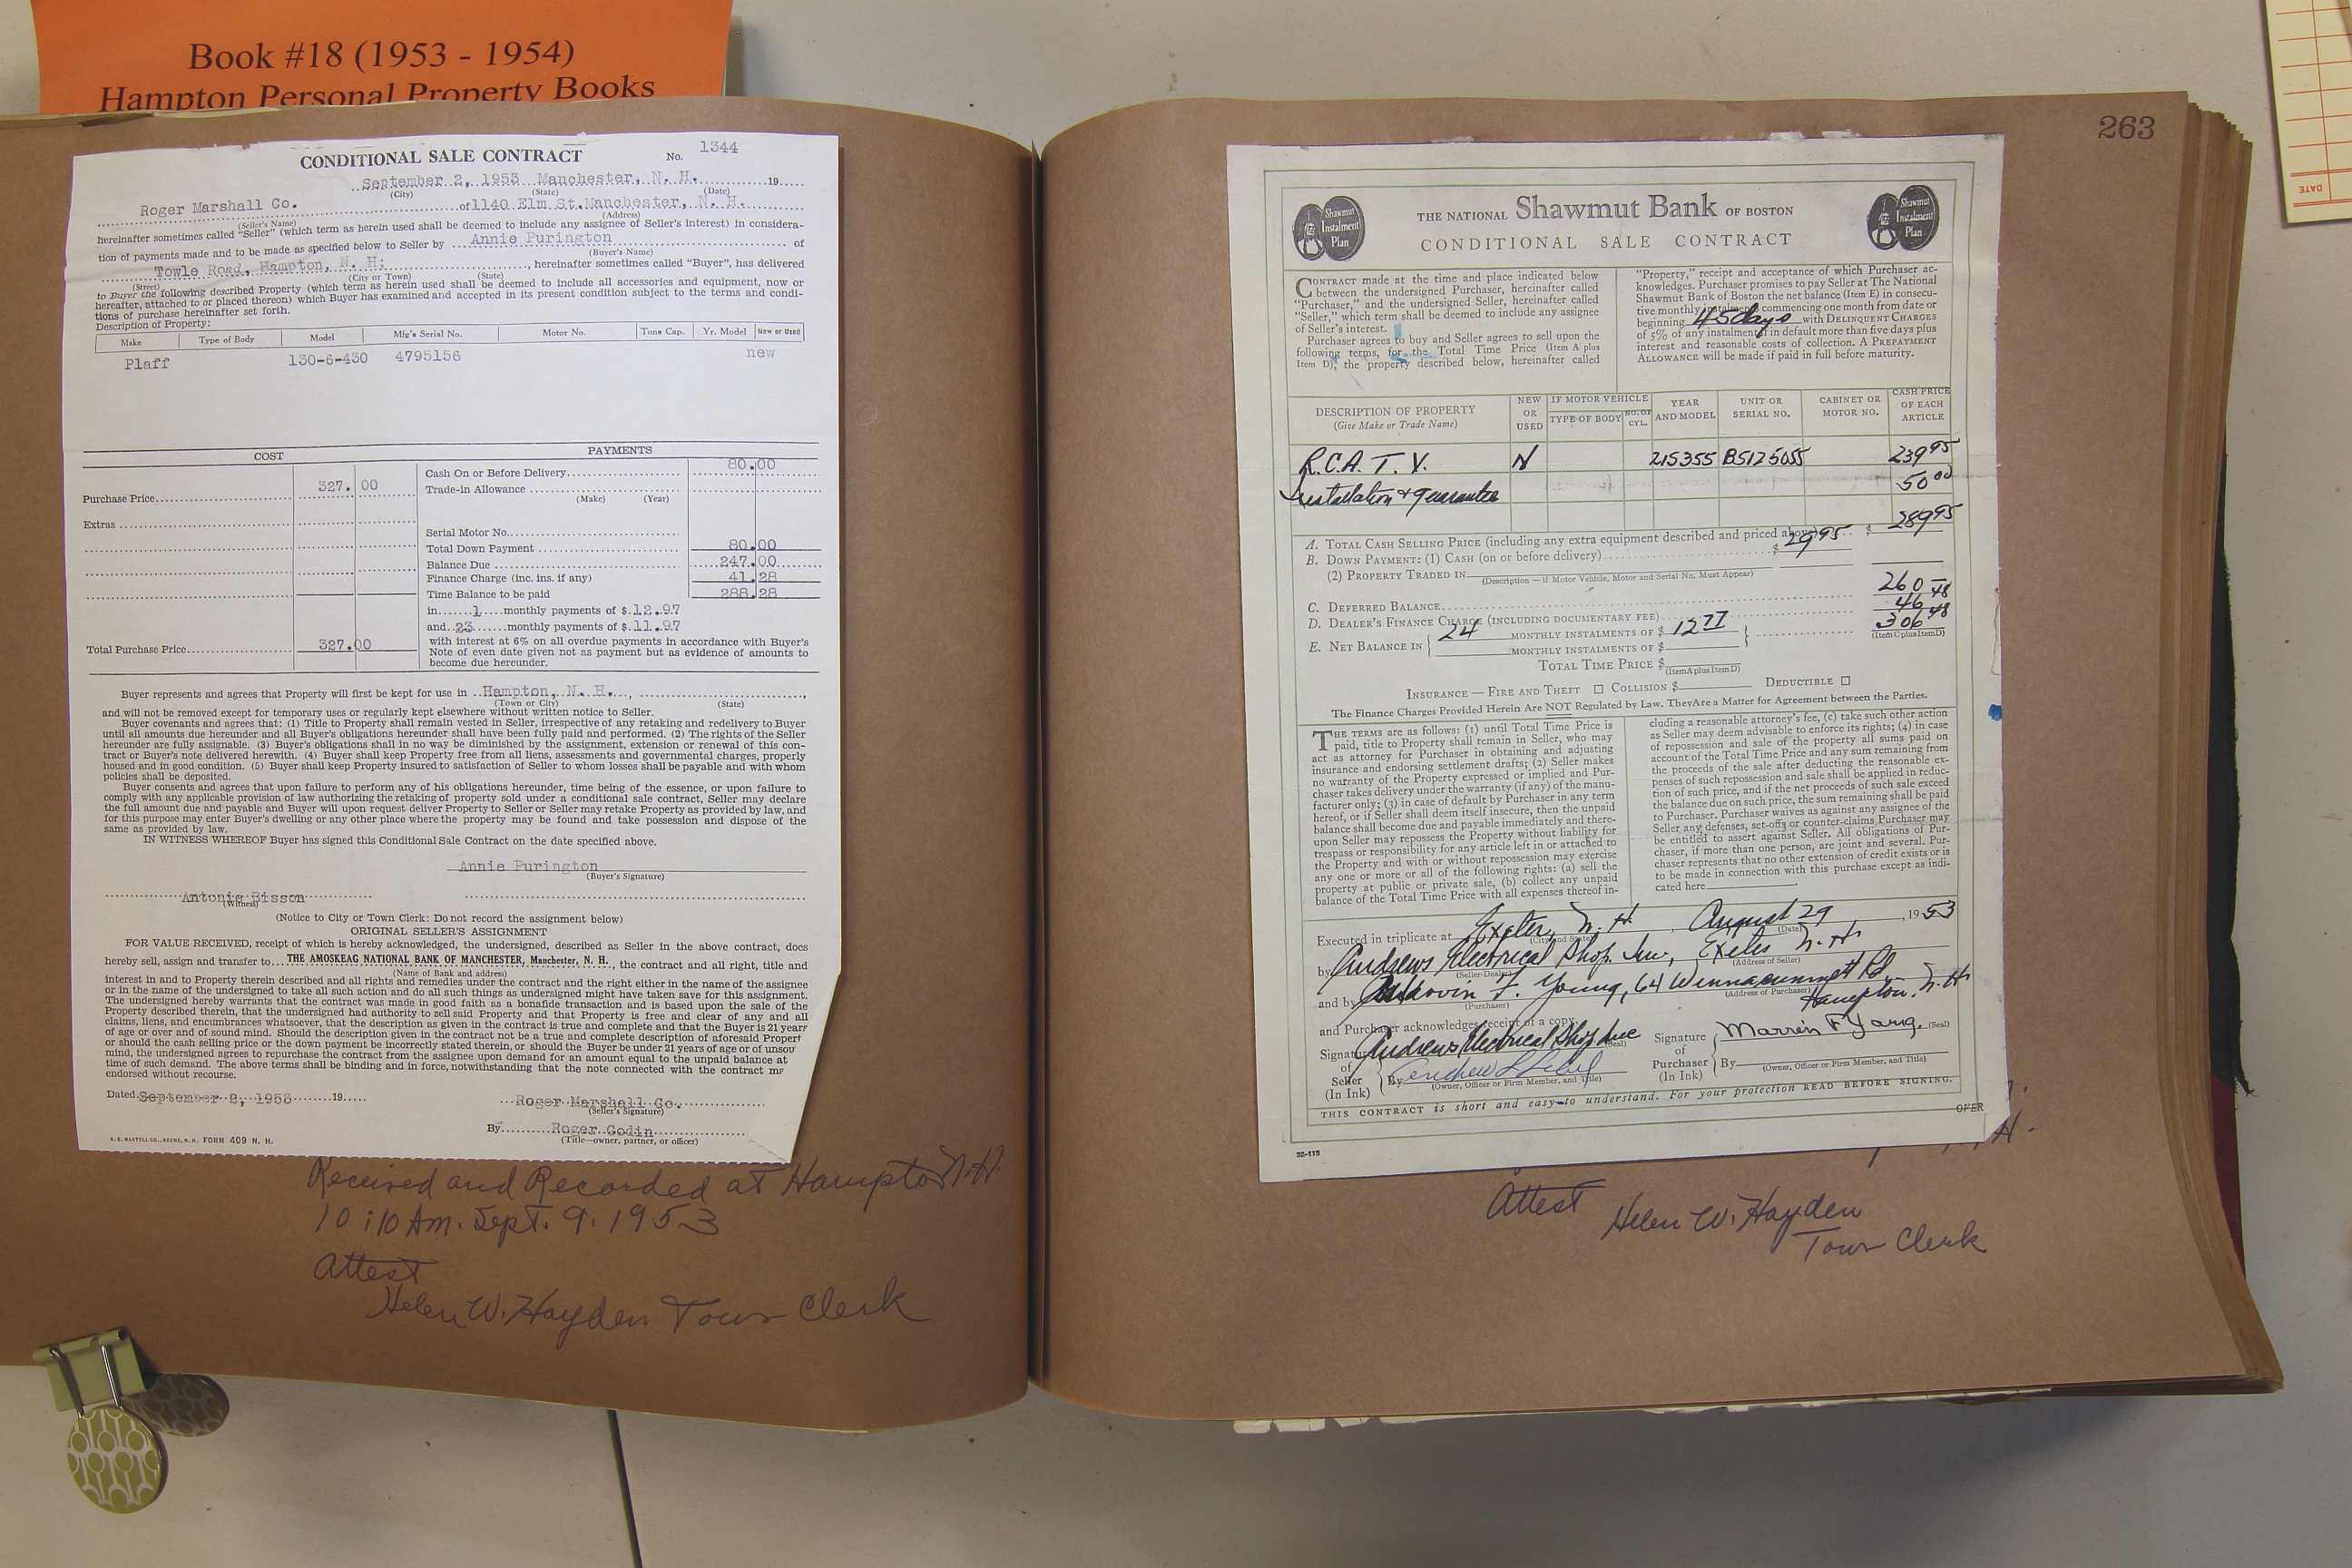 Book #18 (1953 - 1954)
Hampton Personal Property Books
CONDITIONAL SALE CONTRACT No. 1344
September 2, 1953 Manchester, N. H. 19
(City) (State) (Date)
Roger Marshall Co. of 1140 Elm St. Manchester, N. H.
(Seller's Name) (Address)
hereinafter sometimes called "Seller" (which term as herein used shall be deemed to include any assignee of Seller's interest) in considera-
tion of payments made and to be made as specified below to Seller by Annie Purington of
(Buyer's Name)
Towle Road, Hampton, N. H: , hereinafter sometimes called "Buyer", has delivered
(Street) (City or Town) (State)
to Buyer the following described Property (which term as herein used shall be deemed to include all accessories and equipment, now or
hereafter, attached to or placed thereon) which Buyer has examined and accepted in its present condition subject to the terms and condi-
tions of purchase hereinafter set forth.
Description of Property:
Make Type of Body Model Mfg's Serial No. Motor No. Tons Cap. Yr. Model New or Used
Plaff 130-6-430 4795156 new
COST PAYMENTS
Cash On or Before Delivery 80.00
Purchase Price 327.00 Trade-in Allowance
(Make) (Year)
Extras
Serial Motor No.
Total Down Payment 80.00
Balance Due 247.00
Finance Charge (inc. ins. if any) 41.28
Time Balance to be paid 288.28
in 1 monthly payments of $ 12.97
and 23 monthly payments of $ 11.97
Total Purchase Price 327.00 with interest at 6% on all overdue payments in accordance with Buyer's
Note of even date given not as payment but as evidence of amounts to
become due hereunder.
Buyer represents and agrees that Property will first be kept for use in Hampton, N. H. ,
(Town or City) (State)
and will not be removed except for temporary uses or regularly kept elsewhere without written notice to Seller.
Buyer covenants and agrees that: (1) Title to Property shall remain vested in Seller, irrespective of any retaking and redelivery to Buyer
until all amounts due hereunder and all Buyer's obligations hereunder shall have been fully paid and performed. (2) The rights of the Seller
hereunder are fully assignable. (3) Buyer's obligations shall in no way be diminished by the assignment, extension or renewal of this con-
tract or Buyer's note delivered herewith. (4) Buyer shall keep Property free from all liens, assessments and governmental charges, properly
housed and in good condition. (5) Buyer shall keep Property insured to satisfaction of Seller to whom losses shall be payable and with whom
policies shall be deposited.
Buyer consents and agrees that upon failure to perform any of his obligations hereunder, time being of the essence, or upon failure to
comply with any applicable provision of law authorizing the retaking of property sold under a conditional sale contract, Seller may declare
the full amount due and payable and Buyer will upon request deliver Property to Seller or Seller may retake Property as provided by law, and
for this purpose may enter Buyer's dwelling or any other place where the property may be found and take possession and dispose of the
same as provided by law.
IN WITNESS WHEREOF Buyer has signed this Conditional Sale Contract on the date specified above.
Annie Purington
(Buyer's Signature)
Antonie Bisson
(Witness)
(Notice to City or Town Clerk: Do not record the assignment below)
ORIGINAL SELLER'S ASSIGNMENT
FOR VALUE RECEIVED, receipt of which is hereby acknowledged, the undersigned, described as Seller in the above contract, does
hereby sell, assign and transfer to THE AMOSKEAG NATIONAL BANK OF MANCHESTER, Manchester, N. H. , the contract and all right, title and
(Name of Bank and address)
interest in and to Property therein described and all rights and remedies under the contract and the right either in the name of the assignee
or in the name of the undersigned to take all such action and do all such things as undersigned might have taken save for this assignment.
The undersigned hereby warrants that the contract was made in good faith as a bonafide transaction and is based upon the sale of the
Property described therein, that the undersigned had authority to sell said Property and that Property is free and clear of any and all
claims, liens, and encumbrances whatsoever, that the description as given in the contract is true and complete and that the Buyer is 21 years
of age or over and of sound mind. Should the description given in the contract not be a true and complete description of aforesaid Propert
or should the cash selling price or the down payment be incorrectly stated therein, or should the Buyer be under 21 years of age or of unsou
mind, the undersigned agrees to repurchase the contract from the assignee upon demand for an amount equal to the unpaid balance at
time of such demand. The above terms shall be binding and in force, notwithstanding that the note connected with the contract ma
endorsed without recourse.
Dated September 2, 1953 19 Roger Marshall Co.
(Seller's Signature)
By Roger Godin
(Title—owner, partner, or officer)
A. E. MARTELL CO., KEENE, N. H. FORM 409 N. H.
Received and Recorded at Hampton N.H.
10:10 Am. Sept. 9. 1953
Attest
Helen W. Hayden Town Clerk
263
Shawmut Instalment Plan
THE NATIONAL Shawmut Bank OF BOSTON
CONDITIONAL SALE CONTRACT
Shawmut Instalment Plan
CONTRACT made at the time and place indicated below
between the undersigned Purchaser, hereinafter called
"Purchaser," and the undersigned Seller, hereinafter called
"Seller," which term shall be deemed to include any assignee
of Seller's interest.
Purchaser agrees to buy and Seller agrees to sell upon the
following terms, for the Total Time Price (Item A plus
Item D), the property described below, hereinafter called
"Property," receipt and acceptance of which Purchaser ac-
knowledges. Purchaser promises to pay Seller at The National
Shawmut Bank of Boston the net balance (Item E) in consecu-
tive monthly instalments commencing one month from date or
beginning 45 days with DELINQUENT CHARGES
of 5% of any instalment in default more than five days plus
interest and reasonable costs of collection. A PREPAYMENT
ALLOWANCE will be made if paid in full before maturity.
DESCRIPTION OF PROPERTY (Give Make or Trade Name) NEW OR USED IF MOTOR VEHICLE TYPE OF BODY NO. OF CYL. YEAR AND MODEL UNIT OR SERIAL NO. CABINET OR MOTOR NO. CASH PRICE OF EACH ARTICLE
R.C.A. T. V. N 215355 B5125055 239 95
Installation & guarantee 50 00
A. TOTAL CASH SELLING PRICE (including any extra equipment described and priced above) $ 289 95
B. DOWN PAYMENT: (1) CASH (on or before delivery) $ 29 95
(2) PROPERTY TRADED IN
(Description — if Motor Vehicle, Motor and Serial No. Must Appear)
C. DEFERRED BALANCE 260 —
D. DEALER'S FINANCE CHARGE (INCLUDING DOCUMENTARY FEE) 46 48
E. NET BALANCE IN { 24 MONTHLY INSTALMENTS OF $ 12 77 } 306 48
MONTHLY INSTALMENTS OF $ (Item C plus Item D)
TOTAL TIME PRICE $
(Item A plus Item D)
INSURANCE — FIRE AND THEFT □ COLLISION $ DEDUCTIBLE □
The Finance Charges Provided Herein Are NOT Regulated by Law. They Are a Matter for Agreement between the Parties.
THE TERMS are as follows: (1) until Total Time Price is
paid, title to Property shall remain in Seller, who may
act as attorney for Purchaser in obtaining and adjusting
insurance and endorsing settlement drafts; (2) Seller makes
no warranty of the Property expressed or implied and Pur-
chaser takes delivery under the warranty (if any) of the manu-
facturer only; (3) in case of default by Purchaser in any term
hereof, or if Seller shall deem itself insecure, then the unpaid
balance shall become due and payable immediately and there-
upon Seller may repossess the Property without liability for
trespass or responsibility for any article left in or attached to
the Property and with or without repossession may exercise
any one or more or all of the following rights: (a) sell the
property at public or private sale, (b) collect any unpaid
balance of the Total Time Price with all expenses thereof in-
cluding a reasonable attorney's fee, (c) take such other action
as Seller may deem advisable to enforce its rights; (4) in case
of repossession and sale of the property all sums paid on
account of the Total Time Price and any sum remaining from
the proceeds of the sale after deducting the reasonable ex-
penses of such repossession and sale shall be applied in reduc-
tion of such price, and if the net proceeds of such sale exceed
the balance due on such price, the sum remaining shall be paid
to Purchaser. Purchaser waives as against any assignee of the
Seller any defenses, set-offs or counter-claims Purchaser may
be entitled to assert against Seller. All obligations of Pur-
chaser, if more than one person, are joint and several. Pur-
chaser represents that no other extension of credit exists or is
to be made in connection with this purchase except as indi-
cated here
Executed in triplicate at Exeter, N. H. , August 29 , 1953
(City and State) (Date)
by Andrews Electrical Shop. Inc., Exeter N. H.
(Seller-Dealer) (Address of Seller)
and by F. Young, 64 Winnacunnett Rd, Hampton, N. H.
(Purchaser) (Address of Purchaser)
and Purchaser acknowledges receipt of a copy.
Signature of Seller (In Ink) Andrews Electrical Shop Inc (Seal)
By
(Owner, Officer or Firm Member, and Title)
Signature of Purchaser (In Ink) F Young. (Seal)
By
(Owner, Officer or Firm Member, and Title)
THIS CONTRACT is short and easy to understand. For your protection READ BEFORE SIGNING.
OVER
32-115
Attest Helen W. Hayden
Town Clerk
DATE